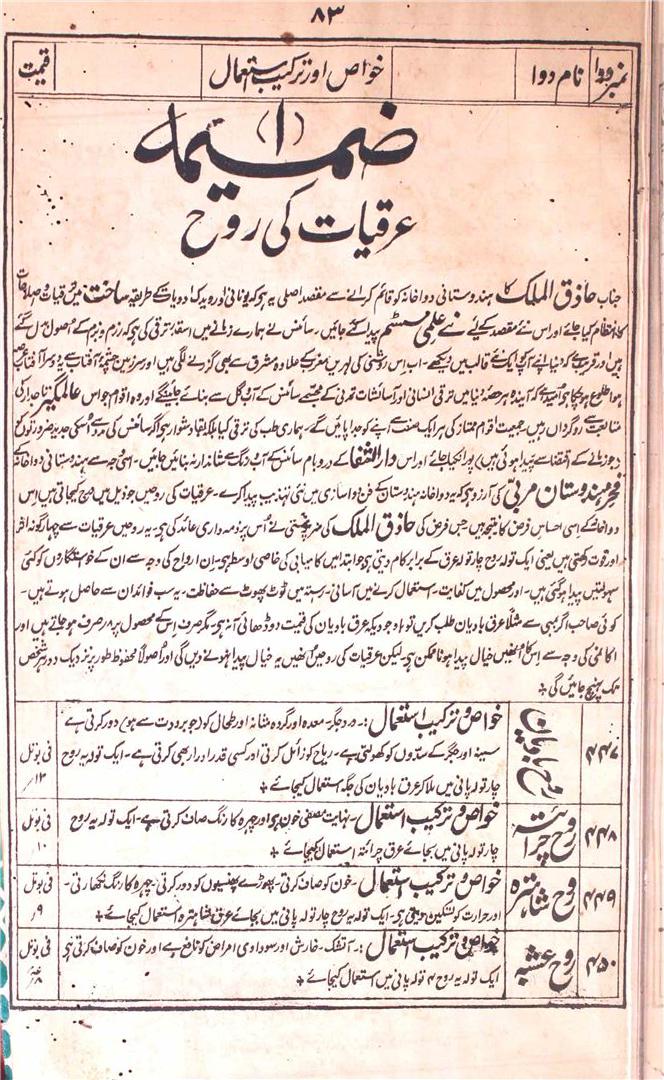 ۸۳
نمبر دوا نام دوا خواص اور ترکیب استعمال قیمت
ضمیمہ (۱)
عرقیات کی روح
جناب حاذق الملک کا ہندوستانی دواخانہ کو قائم کرانے سے مقصد اصلی یہ ہی کہ یونانی اور ویدک ادویات کے طریقہ ساخت میں ترقیات و اصلاحات
کا انتظام کیا جائے اور اس نئے مقصد کیلئے نئے علمی سسٹم پیدا کئے جائیں۔ سائنس نے ہمارے زمانے میں اسقدر ترقی کی ہی کہ رزم و بزم کے اصول بدل گئے
ہیں اور قریب ہے کہ دنیا اپنے آپکو ایک نئے قالب میں دیکھے۔ اب اس روشنی کی لہریں مغرب کے علاوہ مشرق سے بھی گزرنے لگی ہیں اور سرزمین
ہوا طلوع ہو چکا ہی امید ہے کہ آیندہ ہر حصہ دنیا میں ترقی انسانی اور آسائشات تمدنی کے مجسمے سائنس کے آب و گل سے بنائے جائینگے اور وہ اقوام جو اس عالمگیر تاجدار کی
متابعت سے روگرداں ہیں جمعیت اقوام ممتاز کی ہر ایک صف سے اپنے کو جدا پائیں گے۔ ہماری طب کی ترقی کیا بلکہ بقا دشوار ہی اگر سائنس کی مدد سے اُسکی جدید ضرورتوں کو
(جو زمانے کے اقتضا سے پیدا ہوئی ہیں) پورا نکیا جائے اور اس دار الشفا کے در و بام سائنس کے آب و رنگ سے شاندار نہ بنائیں جائیں۔ اسی وجہ سے ہندوستانی دواخانہ
فخر ہندوستان مربی کی آرزو ہی کہ یہ دواخانہ ہندوستان کے فن دواسازی میں نئی تہذیب پیدا کرے۔ عرقیات کی روحیں جو ذیل میں درج کیجاتی ہیں اس
دواخانے کے اسی احساس فرض کا نتیجہ ہیں جس فرض کی حاذق الملک کی سرپرستی نے اُس پر ذمہ داری عائد کی ہی۔ یہ روحیں عرقیات سے چہار گونہ اثر
اور قوت رکھتی ہیں یعنی ایک تولہ روح چار تولہ عرق کے برابر کام دیتی ہی جو ابتدا میں کامیابی کی خاصی اوسط ہی۔ ان ارواح کی وجہ سے ان کے خواستگاروں کو کئی
سہولتیں پیدا ہو گئی ہیں۔ اور محصول میں کفایت۔ استعمال کرنے میں آسانی۔ رستہ میں ٹوٹ پھوٹ سے حفاظت۔ یہ سب فوائد ان سے حاصل ہوتے ہیں۔
کوئی صاحب اگر بمبئی سے مثلاً عرق بادیان طلب کریں تو باوجودیکہ عرق بادیان کی قیمت دو ڈھائی آنہ ہی۔ مگر صرف اس کے محصول پر صرف ہو جاتے ہیں اور
کی وجہ سے اس کا انھیں خیال پیدا ہونا ناممکن ہی۔ لیکن عرقیات کی روحیں انھیں یہ خیال پیدا نہ ہونے دیں گی اور اصولاً محفوظ طور پر نزدیک و دور ہر شخص
تک پہنچ جائیں گی ❖
۴۴۷ روح بادیان خواص و ترکیب استعمال:۔ درد جگر۔ معدہ اور گردہ مثانہ اور طحال کو (جو برودت سے ہو) دور کرتی ہے
سینہ اور جگر کے سدوں کو کھولتی ہے۔ ریاح کو زائل کرتی اور کسی قدر ادرار بھی کرتی ہے۔ ایک تولہ یہ روح فی بوتل
چار تولہ پانی میں ملا کر عرق بادیان کی جگہ استعمال کیجائے ❖ ۱۳
۴۴۸ روح چرائتہ خواص و ترکیب استعمال۔ نہایت مصفی خون ہی اور چہرہ کا رنگ صاف کرتی ہے۔ ایک تولہ یہ روح فی بوتل
چار تولہ پانی میں بجائے عرق چرائتہ استعمال کیجائے ❖ ۱۰
۴۴۹ روح شاہترہ خواص و ترکیب استعمال۔ خون کو صاف کرتی۔ پھوڑے پھنسیوں کو دور کرتی۔ چہرہ کا رنگ نکھارتی۔ فی بوتل
اور حرارت کو تسکین دیتی ہی۔ ایک تولہ یہ روح چار تولہ پانی میں بجائے عرق شاہترہ استعمال کیجائے ❖ ۹ر
۴۵۰ روح عشبہ خواص و ترکیب استعمال:۔ آتشک۔ خارش اور سوداوی امراض کو نافع ہے اور خون کو صاف کرتی ہی فی بوتل
ایک تولہ یہ روح ۴ تولہ پانی میں استعمال کیجائے ❖